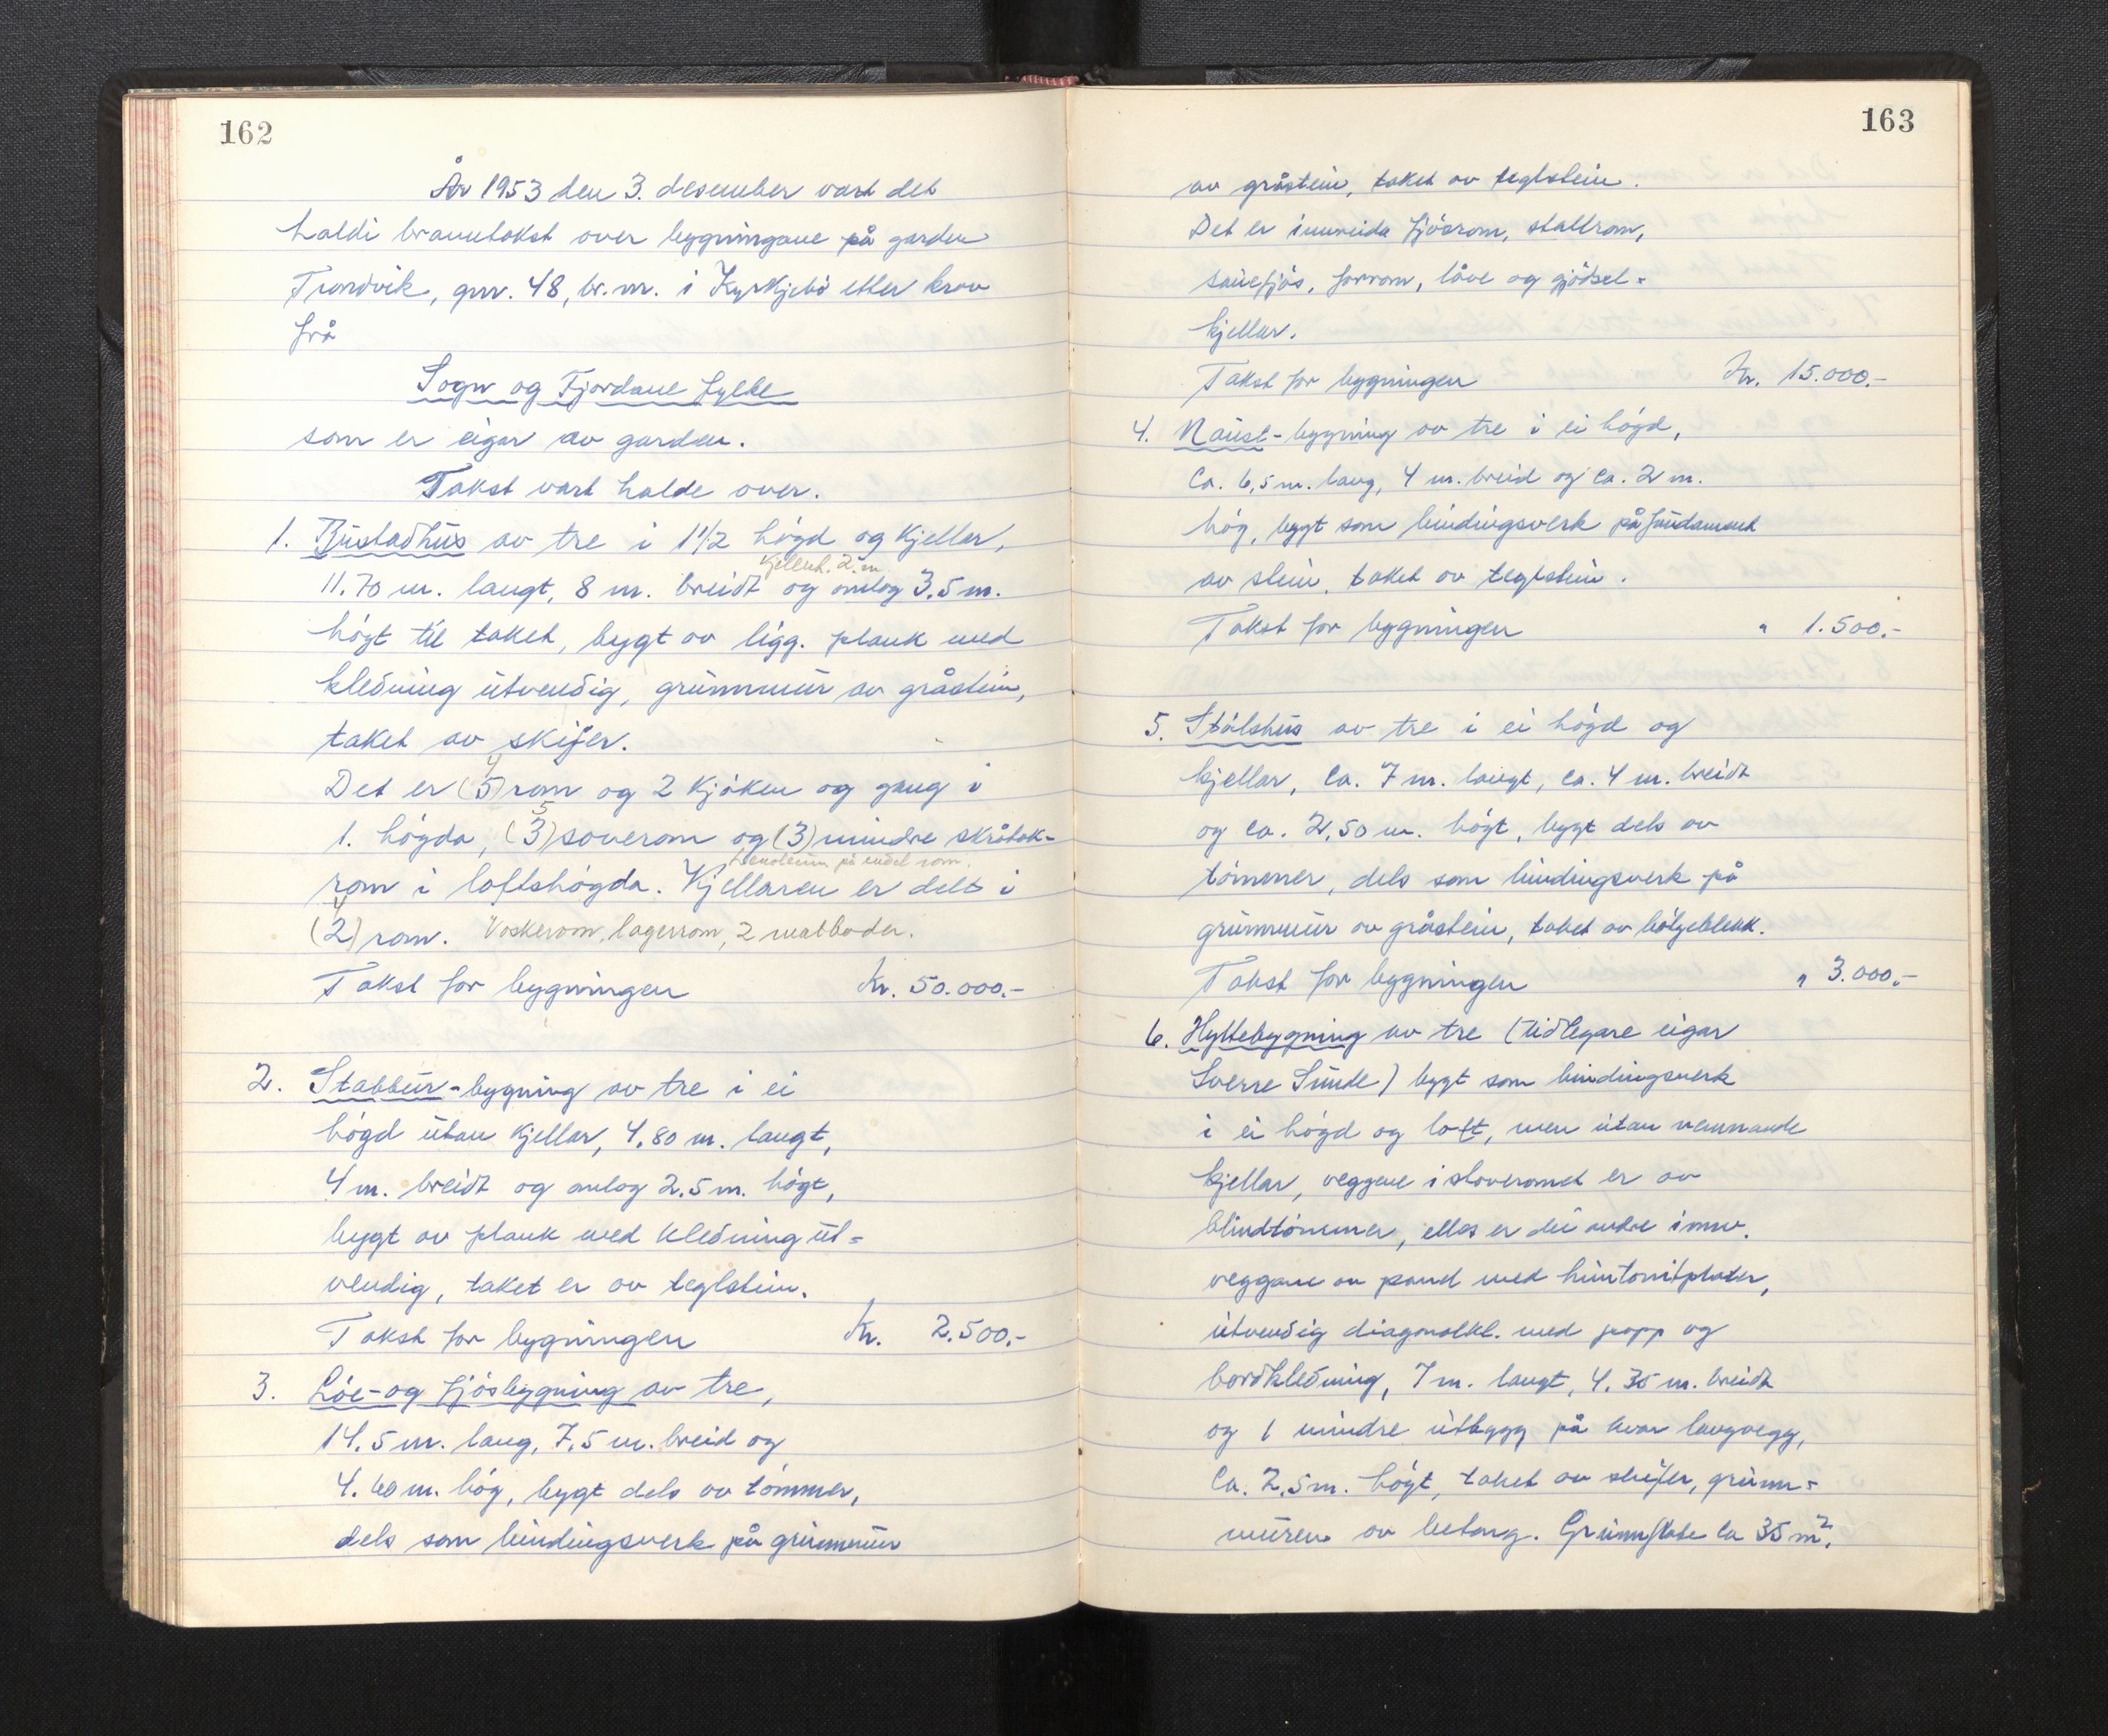 162
År 1953 den 3. desember vart det
haldi branntakst over bygningane på garden
Tundvik, gnr. 48, br. nr. i Kyrkjebø etter krav
frå
Sogn og Fjordane fylke
som er eigar av garden.
Takst vart halde over.
1. Bustadhus av tre i 1 1/2 högd og Kjellar,
Kjellarh. 2. m
11.70 m. langt, 8 m. breidt og omlag 3.5 m.
högt til taket, bygt av ligg. plank med
kledning utvendig, grunnmur av gråstein,
taket av skifer.
4
Det er (5) rom og 2 Kjöken og gang i
5
1. högda, (3) soverom og (3) mindre skråtak-
Lenoleum på endel rom.
rom i loftshögda. Kjellaren er delt i
4
(2) rom. Vaskerom, lagerrom, 2 matboder.
Takst for bygningen Kr. 50.000.-
2. Stabbur-bygning av tre i ei
högd utan Kjellar, 4.80 m. langt,
4 m. breidt og omlag 2.5 m. högt,
bygt av plank med kledning ut=
vendig, taket er av teglstein.
Takst for bygningen Kr. 2.500.-
3. Löe- og fjösbygning av tre,
14.5 m. lang, 7.5 m. breid og
4.60 m. hög, bygt dels av tömmer,
dels som bindingsverk på grunnmur
163
av gråstein, taket av teglstein.
Det er innreida fjösrom, stallrom,
sauefjös, forrom, låve og gjödsel=
kjellar.
Takst for bygningen Kr. 15.000.-
4. Naust-bygning av tre i ei högd,
Ca. 6,5 m. lang, 4 m. breid og ca. 2 m.
hög, bygt som bindingsverk på fundament
av stein, taket av teglstein.
Takst for bygningen " 1.500.-
5. Stölshus av tre i ei högd og
kjellar, Ca. 7 m. langt, ca. 4 m. breidt
og ca. 2,50 m. högt, bygt dels av
tömmer, dels som bindingsverk på
grunnmur av gråstein, taket av bölgeblekk.
Takst for bygningen " 3.000.-
6. Hyttebygning av tre (tidlegare eigar
Sverre Sunde) bygt som bindingsverk
i ei högd og loft, men utan nemnande
kjellar, veggene i stoveromet er av
blindtömmer, elles er dei andre innv.
veggane av panel med huntonitplater,
utvendig diagonalkl. med papp og
bordkledning, 7 m. langt, 4.35 m. breidt
og 1 mindre utbygg på kvar langvegg,
Ca. 2,5 m. högt, taket av skifer, grunn=
muren av betong. Grunnflate ca 35 m².